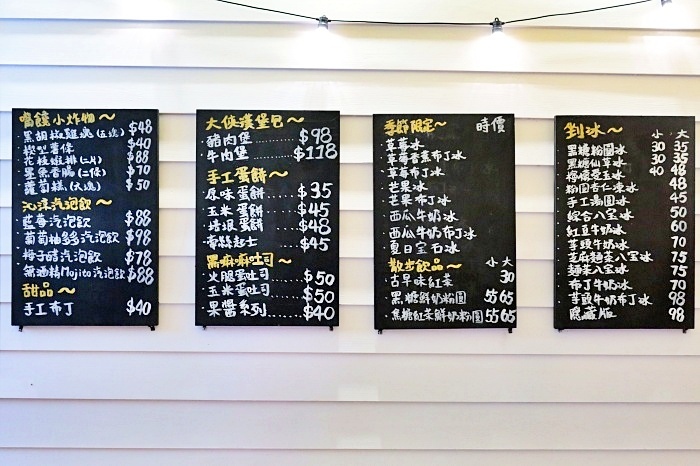 嘴饞小炸物～
黑胡椒雞塊(五塊) $48
楔型薯條 $40
花枝蝦排(二片) $88
墨魚香腸(二條) $70
蘿蔔糕(六塊) $50
沁涼汽泡飲～
藍莓汽泡飲 $88
葡萄柚多汽泡飲 $98
梅子醋汽泡飲 $78
無酒精Mojito汽泡飲 $88
甜品～
手工布丁 $40
大俠漢堡包～
豬肉堡 $98
牛肉堡 $118
手工蛋餅～
原味蛋餅 $35
玉米蛋餅 $45
培根蛋餅 $48
起士 $45
黑麻麻吐司～
火腿蛋吐司 $50
玉米蛋吐司 $50
果醬系列 $40
季節限定～ 時價
草莓冰
草莓香蕉布丁冰
草莓布丁冰
芒果冰
芒果布丁冰
西瓜牛奶冰
西瓜牛奶布丁冰
夏日宝石冰
散步飲品～ 小 大
古早味紅茶 30
黑糖鮮奶粉圓 55 65
焦糖紅茶鮮奶粉圓 55 65
剉冰～ 小 大
黑糖粉圓冰 30 35
黑糖仙草冰 30 35
檸檬愛玉冰 40 48
粉圓杏仁凍冰 48
手工湯圓冰 45
綜合八宝冰 50
紅豆牛奶冰 60
芋頭牛奶冰 70
芝麻麵茶八宝冰 75
麵茶八宝冰 75
布丁牛奶冰 70
芋頭牛奶布丁冰 98
隱藏版 98